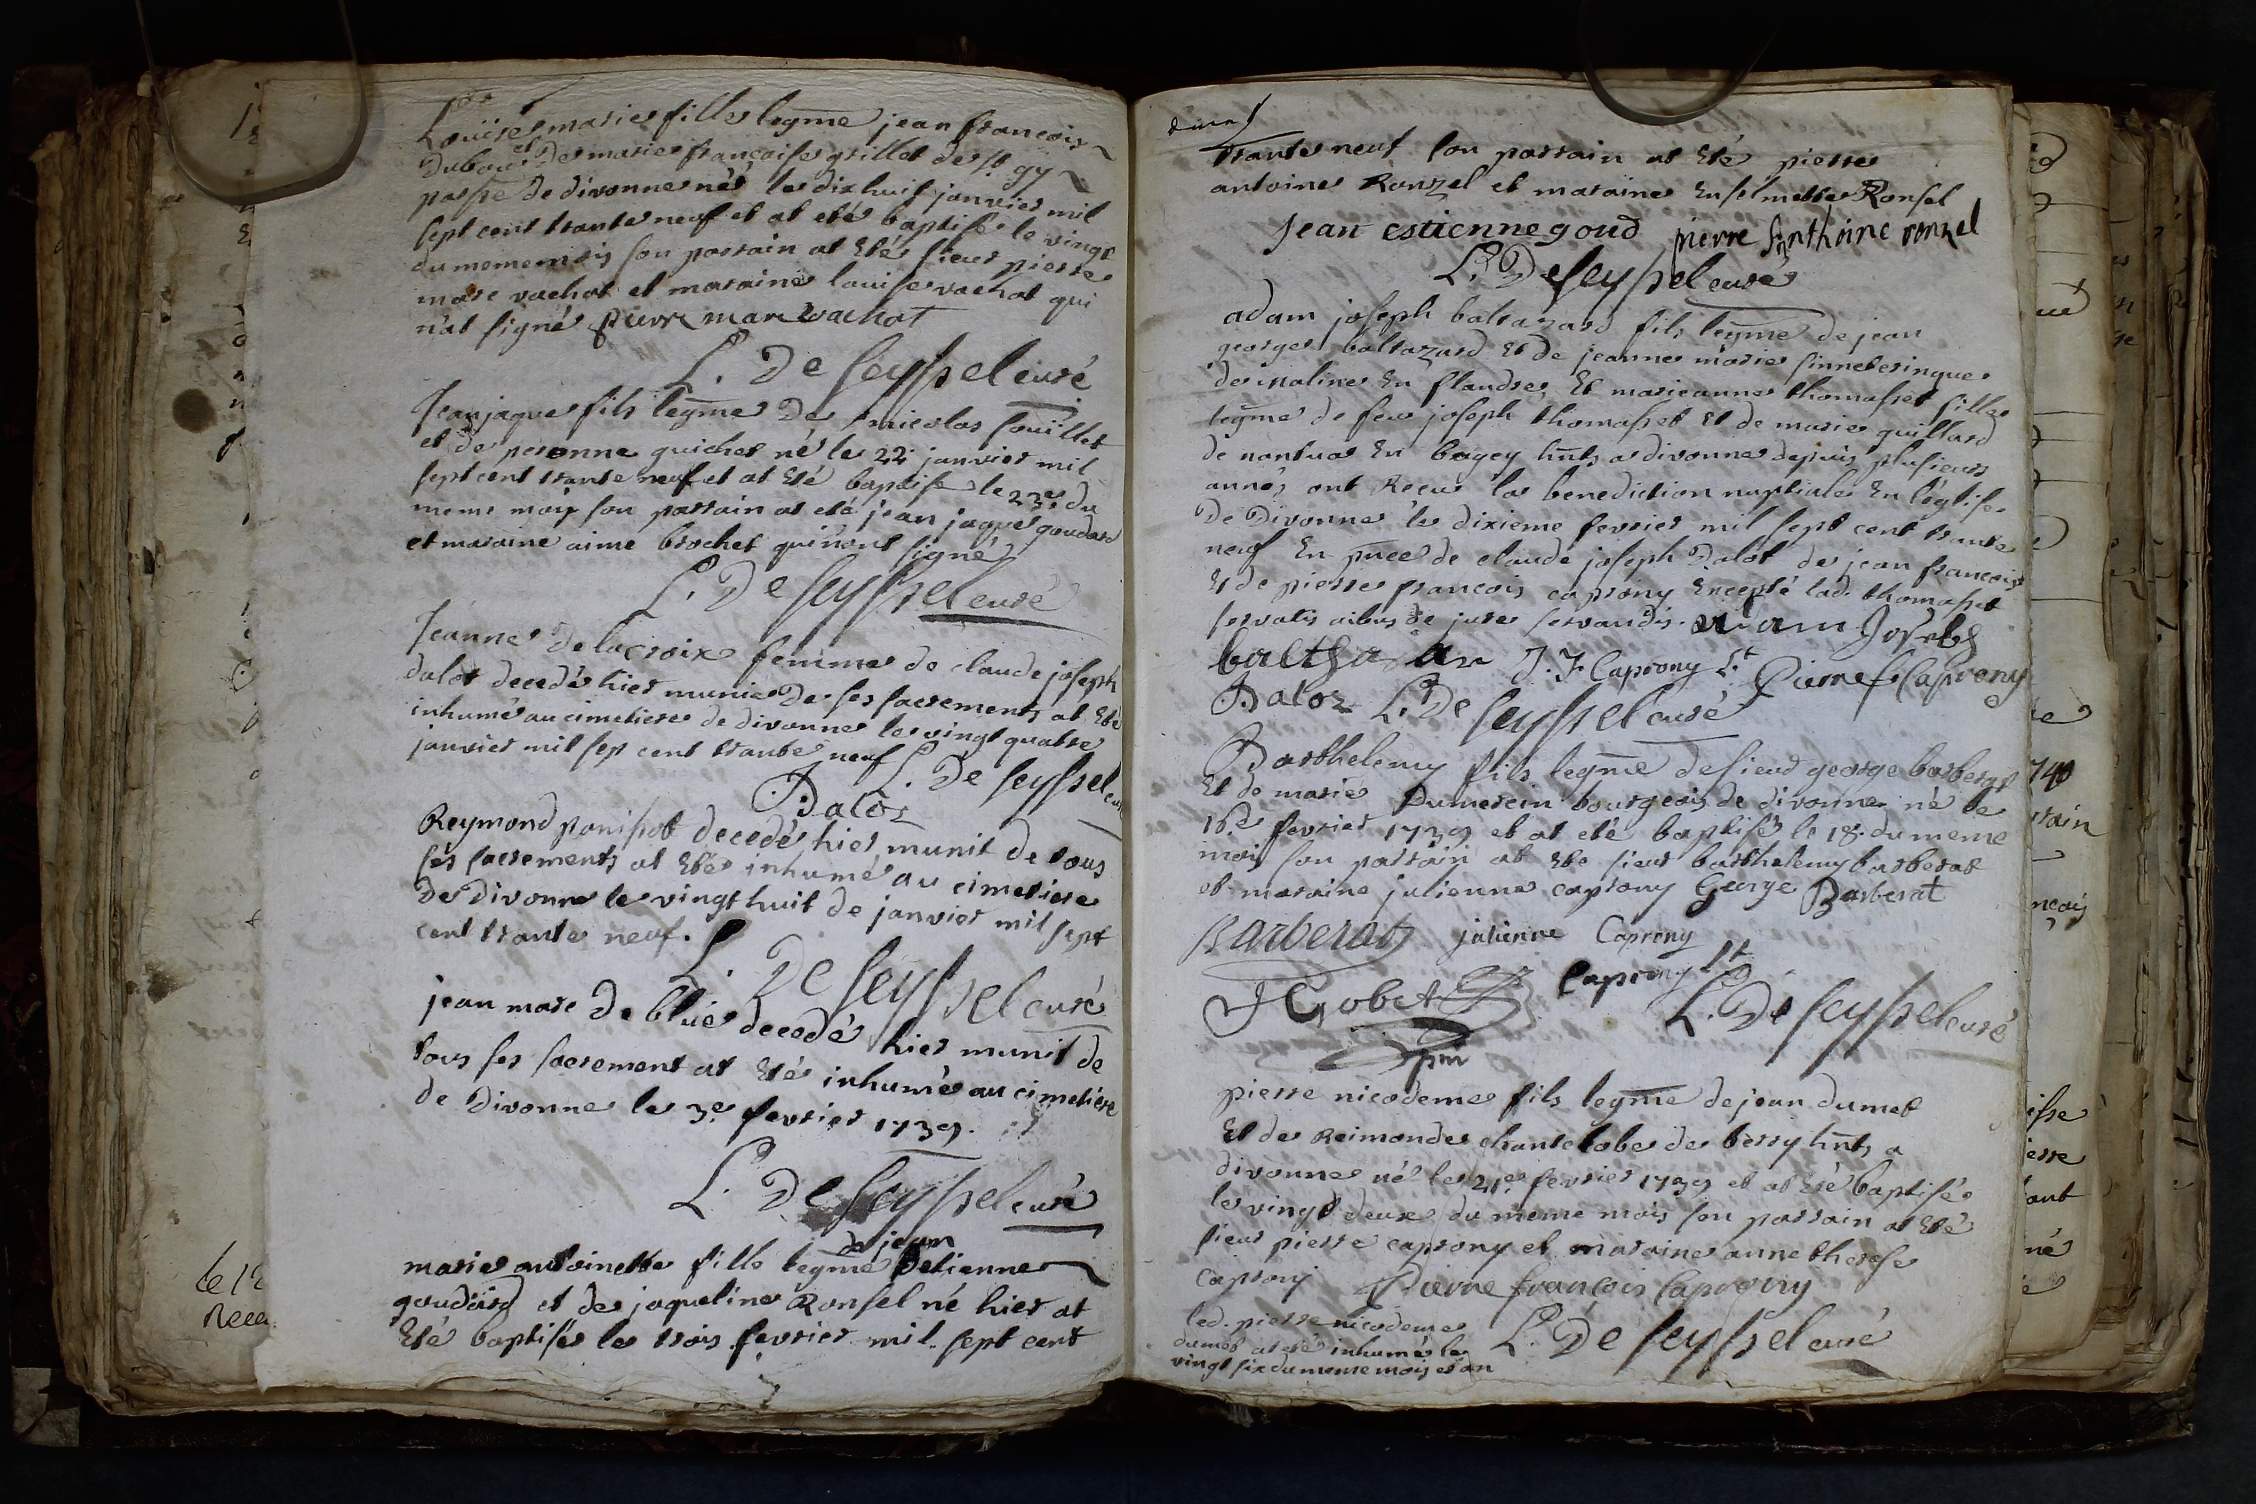 Louise marie fille legme jean francois
Dubout et De marie francoise grillet de st gy
posse de divonne née le dix huit janvier mil
sept cent trante neuf et at eté baptisé le vingt
du meme mois son parrain at Eté sieur pierre
marc vachat et maraine louise vachat qui
n'at signé pierre marc vachat
L. De seyssel curé
Jean jaque fils legme De nicolas souillet
et de peronne guichet né le 22 janvier mil
sept cent trante neuf et at Eté baptisé le 23e du
meme mois son parrain at eté jean jaque goudard
et maraine aime brochet qui n'ont signé
L. De seyssel curé
Jeanne Delacroix femme de claude joseph
dalot decedé hier munie De ses sacrements at Eté
inhumé au cimetiere de divonne le vingt quatre
janvier mil sep cent trante neuf L. De seyssel cur
Daloz
Reymond ponissot decedé hier munit de tous
ses sacrements at Eté inhumé au cimetiere
De Divonne le vingt huit de janvier mil sept
cent trante neuf.
L. De seyssel curé
jean marc De blue decedé hier munit de
tous ses sacrement at Eté inhumé au cimetiere
de Divonne le 3e fevrier 1739.
L. De seyssel curé
de jean
marie antoinette fille legme Detienne
goudard et de jaqueline Ronsel né hier at
Eté baptisée le trois fevrier mil sept cent
trante neuf son parrain at Eté pierre
antoine Ronzel et maraine Enselmette Ronsel
Jean estienne goud pierre anthoine ronzel
L. De seyssel curé
adam joseph baltazard fils legme de jean
george baltazard Et De jeanne marie sinneteringue
de maline En flandre, Et marieanne thomasset fille
legme de feu joseph thomasset Et de marie guillard
de nantua En bugey hnts a divonne depuis plusieurs
annés ont Recue la benediction nuptiale En l'église
De Divonne le dixieme fevrier mil sept cent trante
neuf En pnce de claude joseph Dalot de jean francois
Et de pierre francois caprony Excepté lad. thomasset
servatis aliis de jure servandis. adam Joseph
balthazar J. F. Caprony Lt. Pierre f. Caprony
Daloz L. De seyssel curé
Barthelemy fils legme de sieur george barberat
Et de marie Dumerein bourgeois de divonne né le
16e fevrier 1739 et at eté baptisé le 18. du meme
mois son parrain at Eté sieur barthelemy barberat
et maraine julienne caprony George Barberat
Barberat julienne Caprony
J Gobet Caprony Lt
L. De seyssel curé
pierre nicodeme fils legme de jean dumet
Et de Reimonde chantelobe de berry hnts a
divonne né le 21e fevrier 1739 et at Eté baptisé
le vingt deux du meme mois son parrain at Eté
sieur pierre caprony et maraine anne therese
caprony Pierre francois Caprony
led. pierre nicodeme
dumet at eté inhumé le L. De seyssel curé
vingt six du meme mois et an